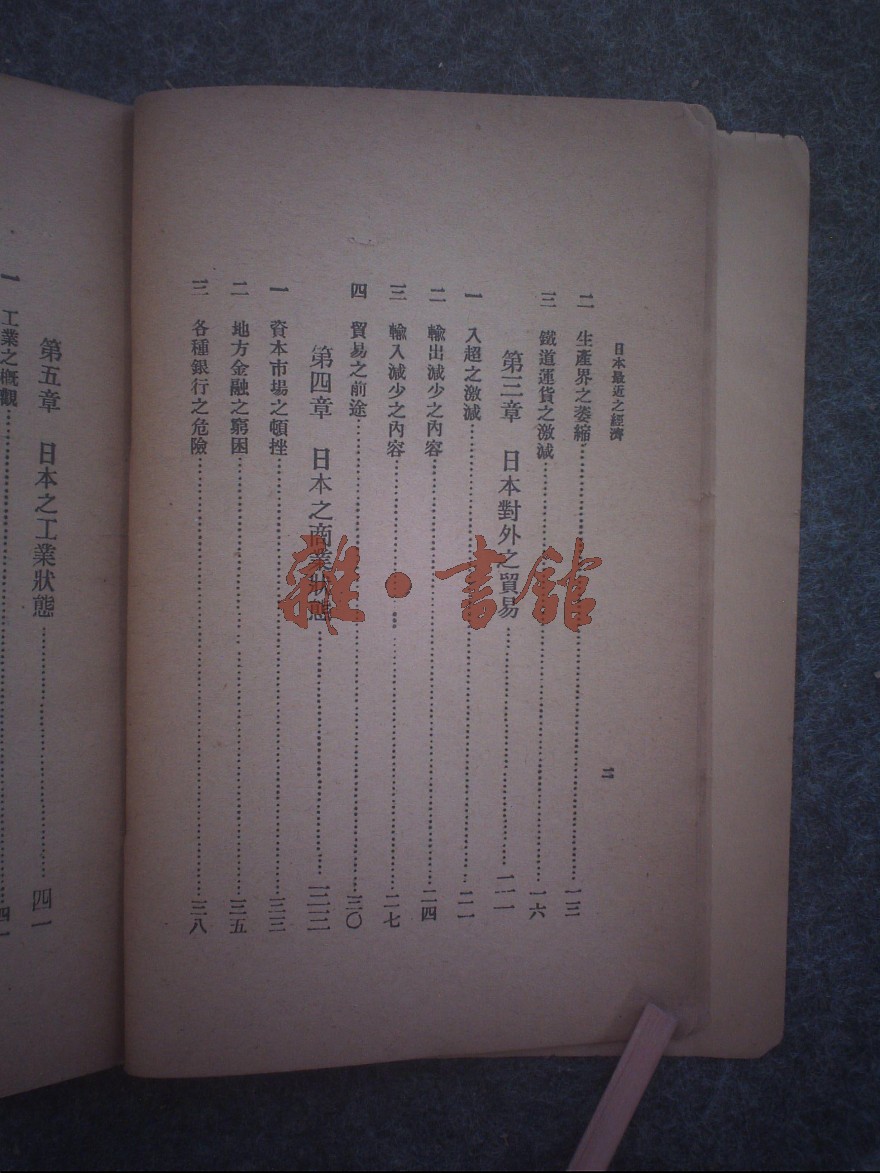 日本最近之經濟
二
二 生產界之萎縮 一三
三 鐵道運貨之激減 一六
第三章 日本對外之貿易 二一
一 入超之激減 二一
二 輸出減少之內容 二四
三 輸入減少之內容 二七
四 貿易之前途 三〇
第四章 日本之商業狀態 三三
一 資本市場之頓挫 三三
二 地方金融之窮困 三五
三 各種銀行之危險 三八
第五章 日本之工業狀態 四一
一 工業之概觀 四一
雜·書館